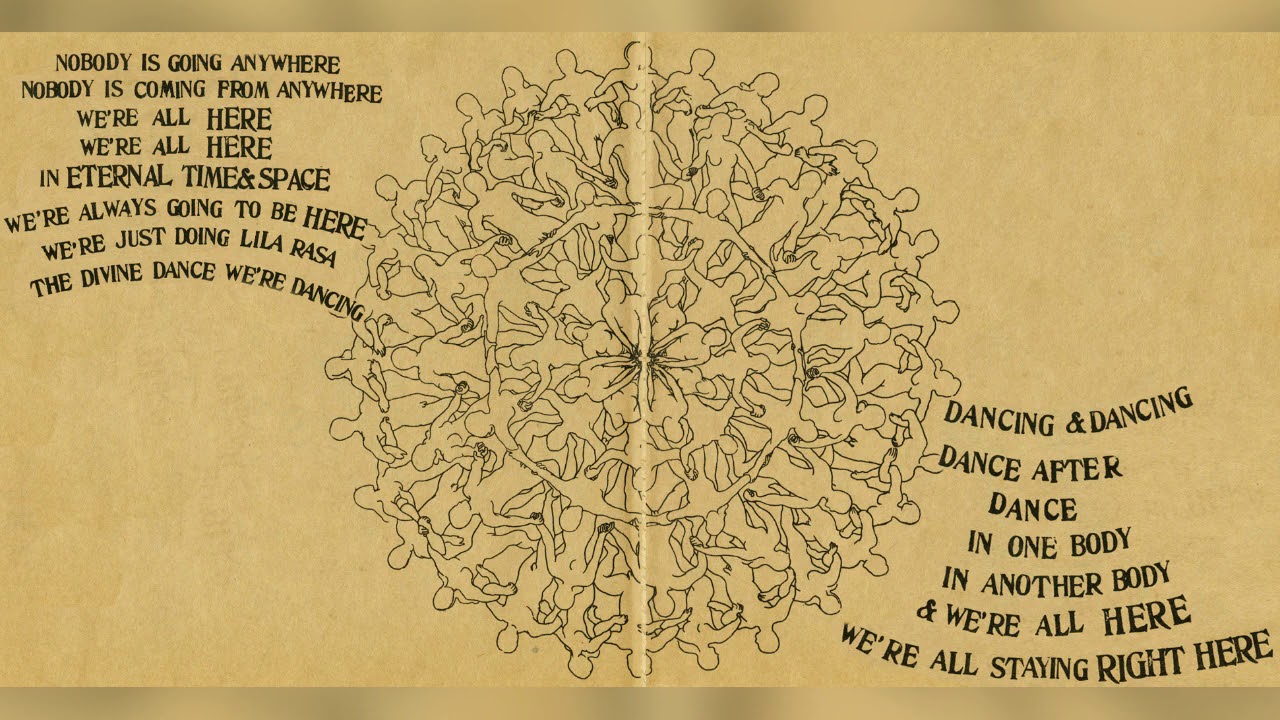 NOBODY IS GOING ANYWHERE
NOBODY IS COMING FROM ANYWHERE
WE'RE ALL HERE
WE'RE ALL HERE
IN ETERNAL TIME & SPACE
WE'RE ALWAYS GOING TO BE HERE
WE'RE JUST DOING LILA RASA
THE DIVINE DANCE WE'RE DANCING
DANCING & DANCING
DANCE AFTER
DANCE
IN ONE BODY
IN ANOTHER BODY
& WE'RE ALL HERE
WE'RE ALL STAYING RIGHT HERE